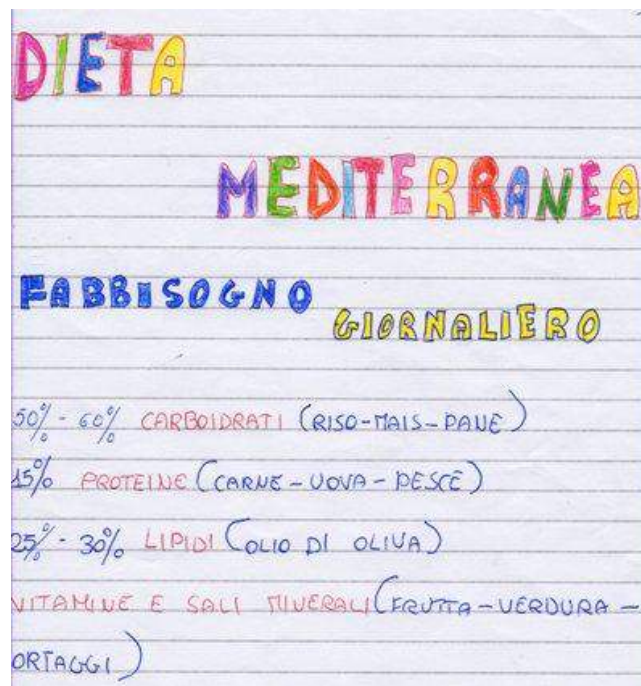 DIETA
MEDITERRANEA
FABBISOGNO
GIORNALIERO
50% - 60% CARBOIDRATI (RISO-MAIS-PANE)
15% PROTEINE (CARNE - UOVA - PESCE)
25% - 30% LIPIDI (OLIO DI OLIVA)
VITAMINE E SALI MINERALI (FRUTTA - VERDURA -
ORTAGGI)